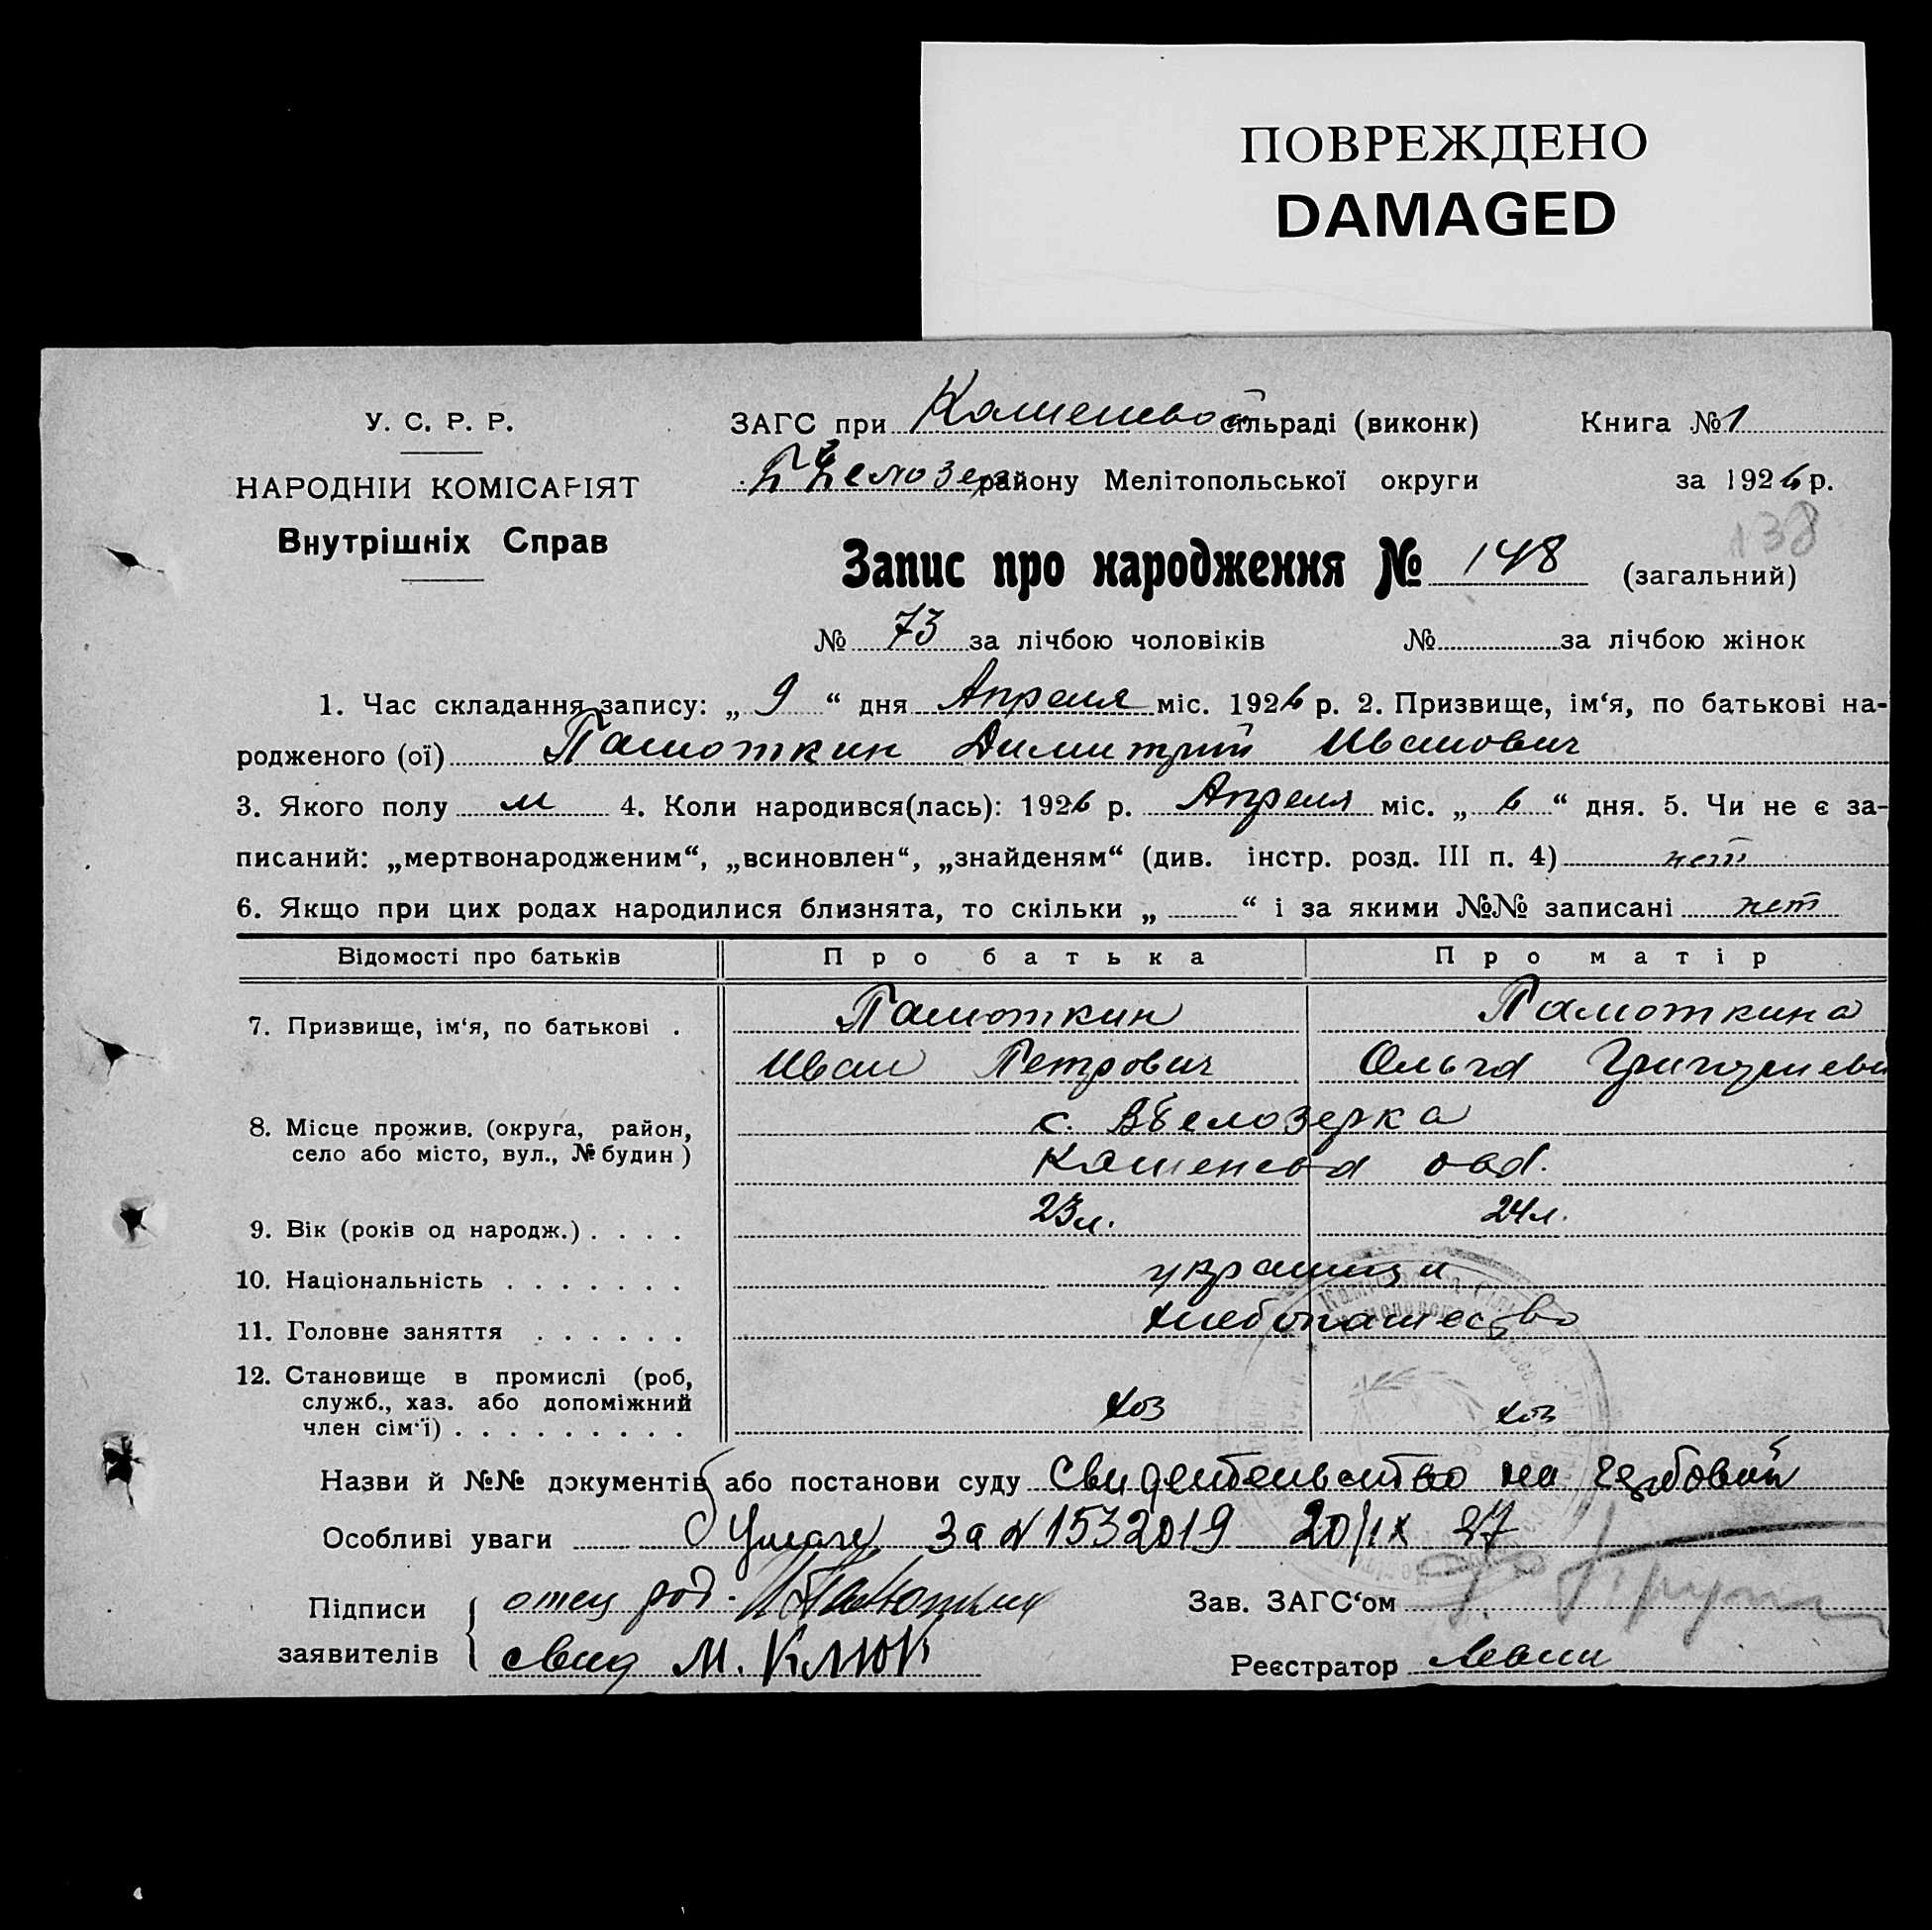 ПОВРЕЖДЕНО
DAMAGED
У. С. Р. Р.
НАРОДНІЙ КОМІСАРІЯТ
Внутрішніх Справ
ЗАГС при Каменевой сільраді (виконк) Книга № 1
Белозер району Мелітопольської округи за 1926 р.
138
Запис про народження № 148 (загальний)
№ 73 за лічбою чоловіків № за лічбою жінок
1. Час складання запису: „ 9 “ дня Апреля міс. 1926 р. 2. Призвище, ім‘я, по батькові на-
родженого (ої) Памоткин Димитрий Иванович
3. Якого полу м 4. Коли народився(лась): 1926 р. Апреля міс. „ 6 “ дня. 5. Чи не є за-
писаний: „мертвонародженим“, „всиновлен“, „знайденям“ (див. інстр. розд. III п. 4) нет
6. Якщо при цих родах народилися близнята, то скільки „ “ і за якими №№ записані нет
Відомості про батьків Про батька Про матір
7. Призвище, ім‘я, по батькові . Памоткин Памоткина
Иван Петрович Ольга Григориев
8. Місце прожив. (округа, район, с. ВБелозерка
село або місто, вул., № будин) Каменева
9. Вік (років од народж.) . . . . 23л. 24л.
10. Національність . . . . . . . украинцы
11. Головне заняття . . . . . . хлебопашество
12. Становище в промислі (роб,
служб., хаз. або допоміжний хоз хоз
член сім‘ї) . . . . . . . . .
Назви й №№ документів або постанови суду Свидетельство на гербовой
Особливі уваги бумаге за № 1532019 20/IX 27
Підписи отец род. Зав. ЗАГС‘ом
заявителів свид М. Клюк Реєстратор Левин